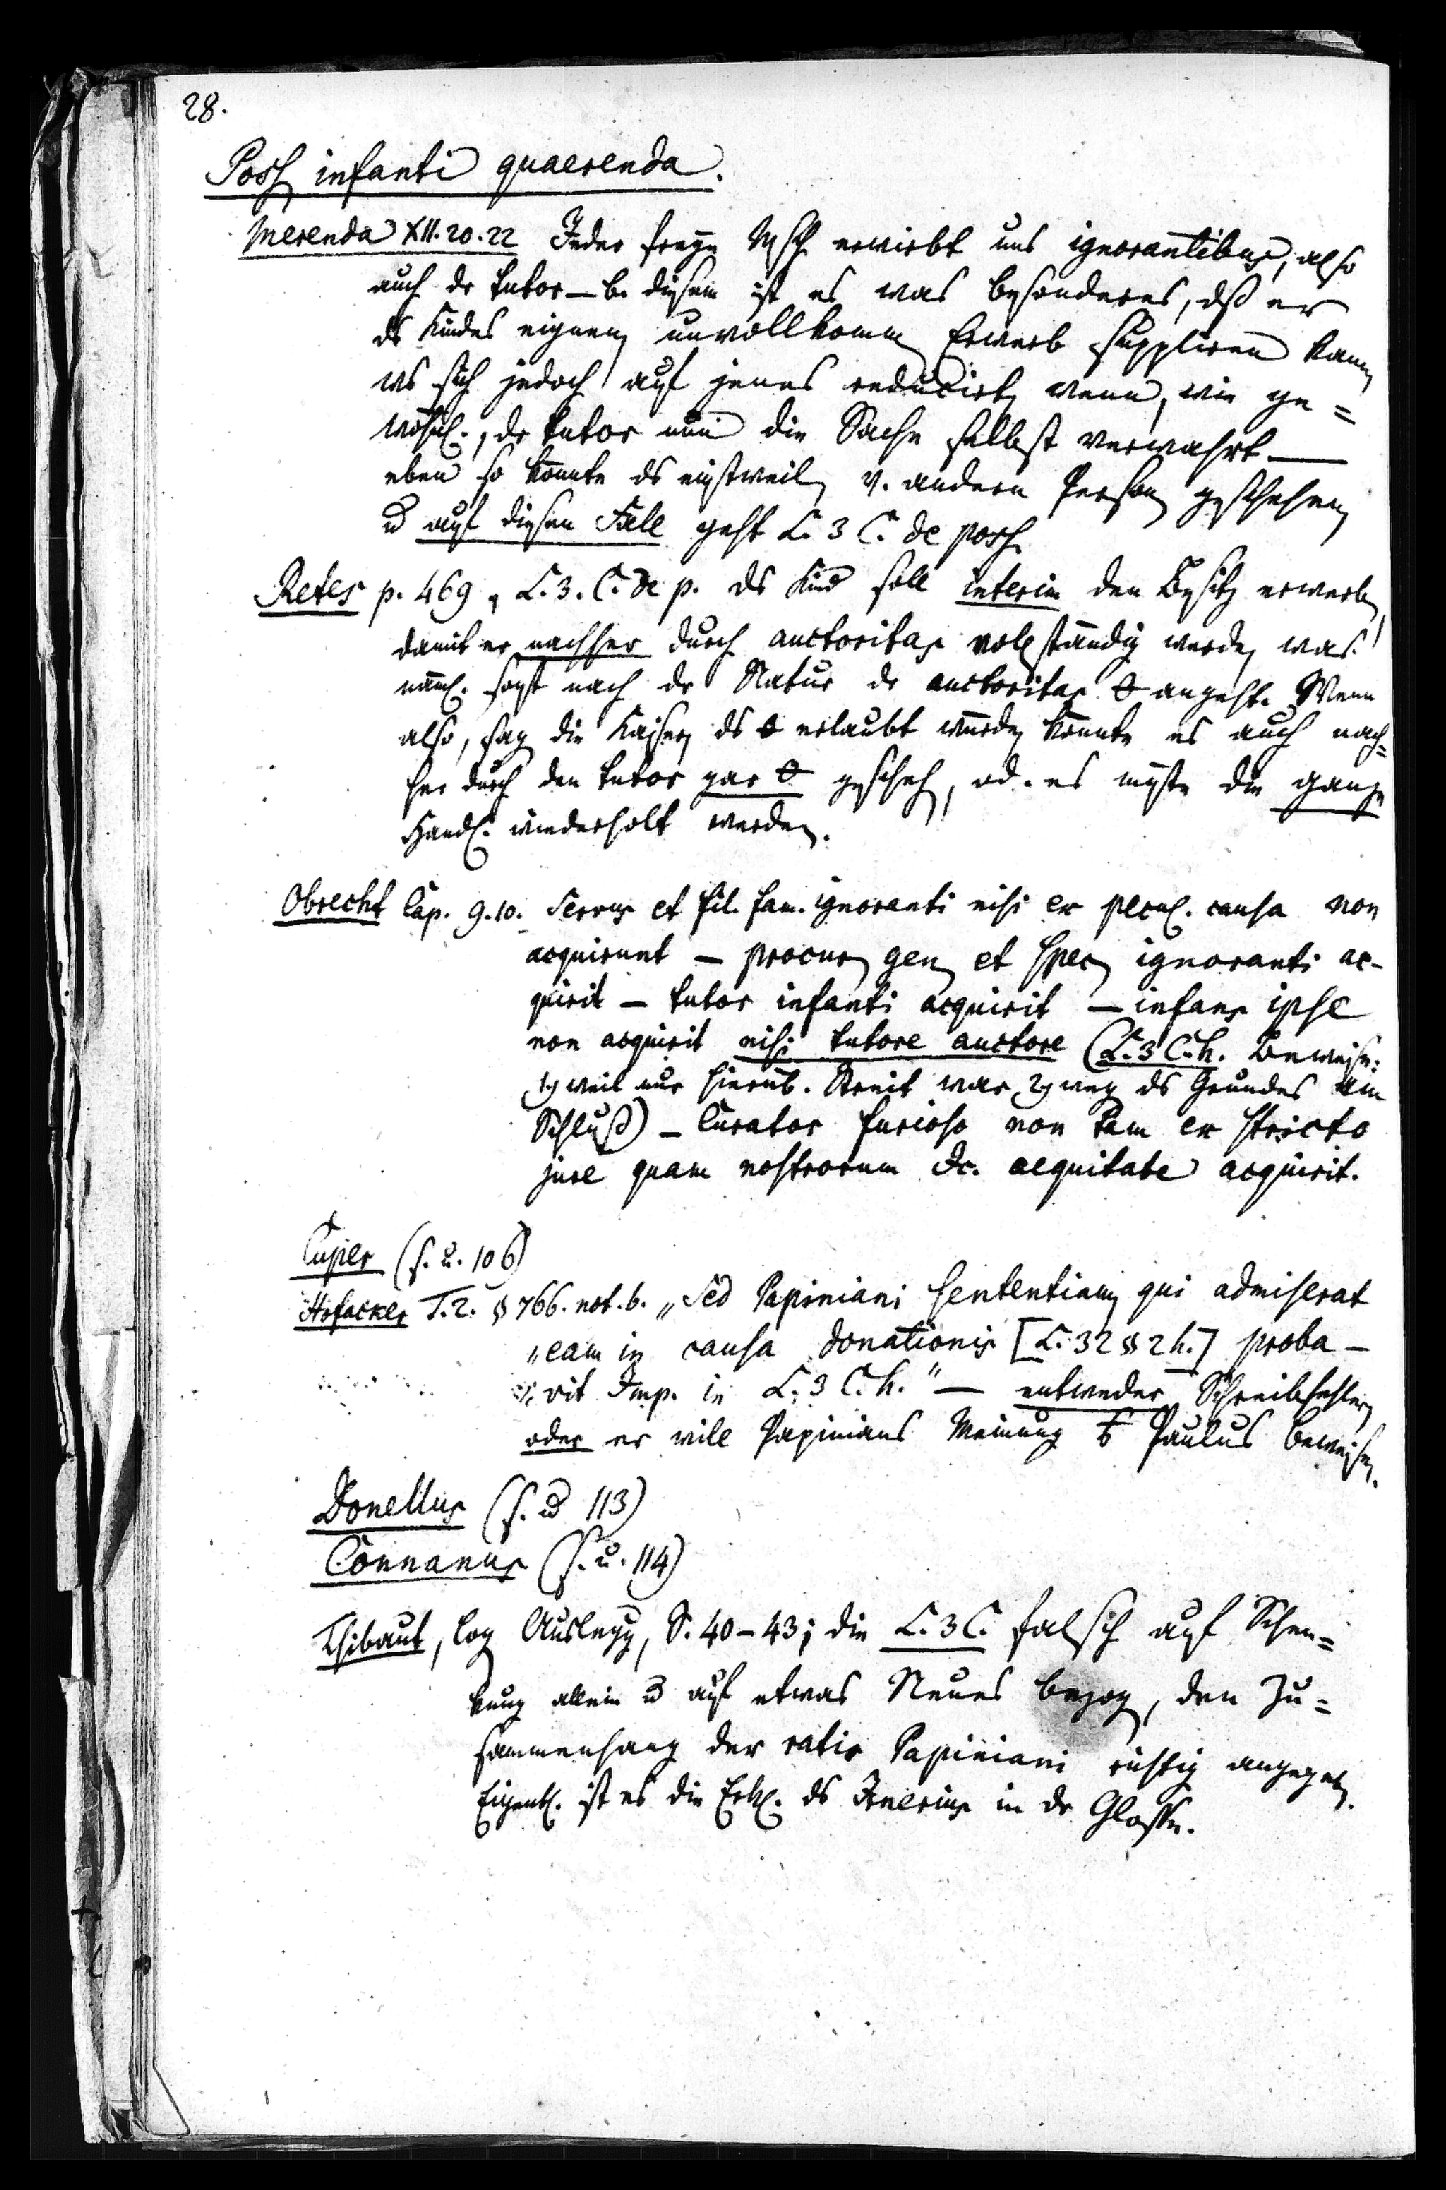 28.
Poss. infanti quaerenda.
Merenda XII. 20. 22 Jeder freye Msch erwirbt uns ignorantibus, also
auch dr tutor – b. diesem ist es was besonderes, dß er
ds Kindes eignen unvollkomm. Erwerb suppliren kann
ws sich jedoch auf jenes reducirt, wenn, wie ge=
wöhnl., dr tutor nun die Sache selbst verwahrt —
eben so konnte ds einstweil. v. andern Person geschehen
u auf diesen Fall geht L. 3 C. de poss.
Retes p. 469, L. 3. C. de p. ds Kind soll interim den Besitz erwerb.,
damit er nachher durch auctoritas vollständig werde, was
näml. sonst nach dr Natur dr auctoritas angeht. Wenn
also, sag. die Kaiser, ds erlaubt würde, könnte es auch nach=
her durch den tutor gar gescheh., od. es müßte die ganze
Handl. wiederholt werden.
Obrecht Cap. 9. 10. Servus et fil. fam. ignoranti nisi ex pecul. causa non
acquirunt – procur. gen. et spec. ignoranti ac-
quirit – tutor infanti acquirit – infans ipse
non acquirit nisi tutore auctore (L. 3 C. h. Beweise:
1) weil nur hierüb. Streit war, 2) weg. ds Grundes am
Schluß) – Curator furioso non tam ex stricto
jure quam nostrorum Dc. aequitate acquirit.
Cuper (s. u. 106)
Hofacker T. 2. § 766. not. b. „Sed Papiniani sententiam, qui admiserat
„eam in causa donationis [L. 32 § 2 h.] proba–
„vit Imp. in L. 3 C. h." — entweder Schreibfehler,
oder er will Papinians Meinung Paulus beweisen.
Donellus (s. u 113)
Connanus (s. u. 114)
Thibaut, log. Auslegg, S. 40–43; die L. 3 C. falsch auf Schen=
kung allein u auf etwas Neues bezog., den Zu=
sammenhang der ratio Papiniani richtig angegeb.
Eigentl. ist es die Erkl. ds Irnerius in dr Glosse.